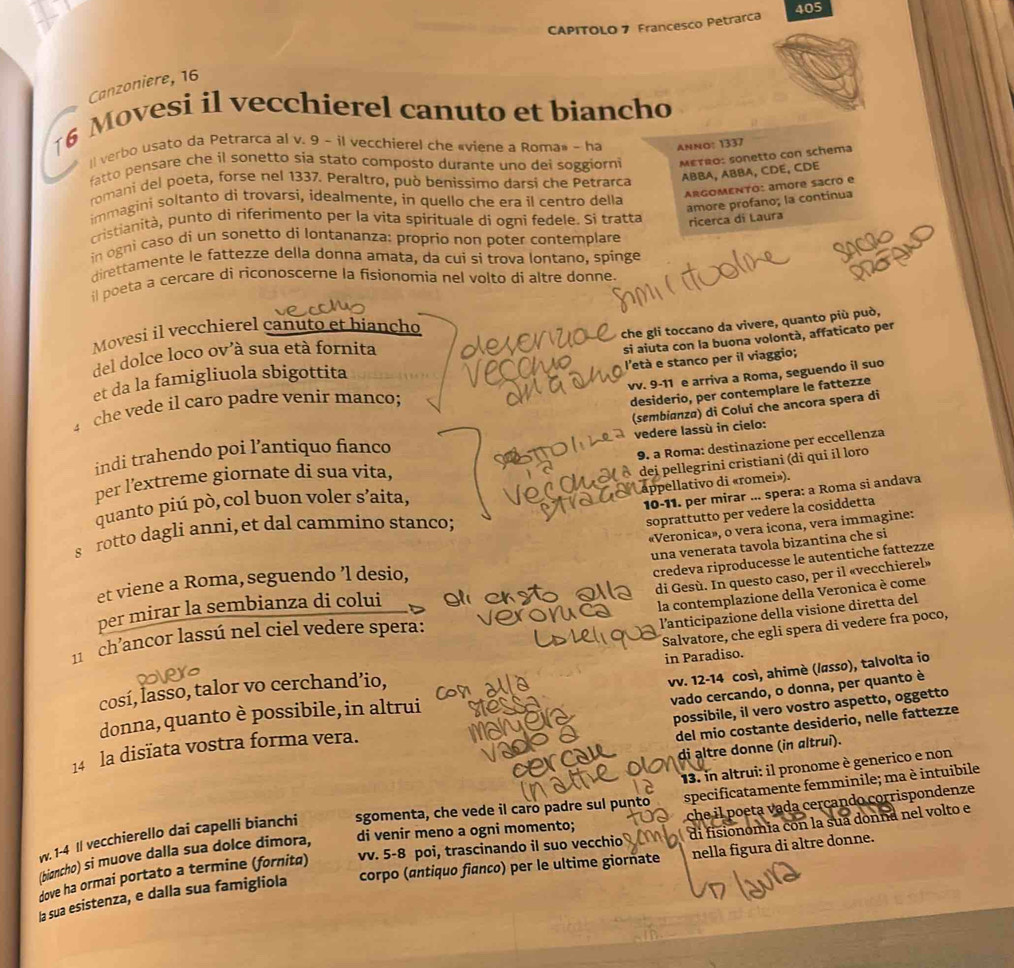 405
CAPITOLO 7 Francesco Petrarca
Canzoniere, 16
T6 Movesi il vecchierel canuto et biancho
Il verbo usato da Petrarca al v. 9 – il vecchierel che «viene a Roma» – ha
fatto pensare che il sonetto sia stato composto durante uno dei soggiorni
romani del poeta, forse nel 1337. Peraltro, può benissimo darsi che Petrarca
immagini soltanto di trovarsi, idealmente, in quello che era il centro della
cristianità, punto di riferimento per la vita spirituale di ogni fedele. Si tratta
in ogni caso di un sonetto di lontananza: proprio non poter contemplare
direttamente le fattezze della donna amata, da cui si trova lontano, spinge
il poeta a cercare di riconoscerne la fisionomia nel volto di altre donne.
ANNO: 1337
METRO: sonetto con schema
ABBA, ABBA, CDE, CDE
ARGOMENTO: amore sacro e
amore profano; la continua
ricerca di Laura
SACRO
PROFANO
similitudine
vecchio
Movesi il vecchierel canuto et biancho
del dolce loco ov'à sua età fornita
et da la famigliuola sbigottita
4 che vede il caro padre venir manco;
descrizione
vecchio
indi trahendo poi l'antiquo fianco
per l'extreme giornate di sua vita,
quanto piú pò, col buon voler s'aita,
8 rotto dagli anni, et dal cammino stanco;
sottolinea
la
vecchiaia
et viene a Roma, seguendo 'l desio,
per mirar la sembianza di colui
11 ch'ancor lassú nel ciel vedere spera:
di cristo alla
veronica
La reliqua
povero
cosí, lasso, talor vo cerchand'io,
donna, quanto è possibile, in altrui
14 la disïata vostra forma vera.
con alla
stessa
maniera
vado a
cercare
in altre donne
la
tua
Laura
che gli toccano da vivere, quanto più può,
si aiuta con la buona volontà, affaticato per
l'età e stanco per il viaggio;
vv. 9-11 e arriva a Roma, seguendo il suo
desiderio, per contemplare le fattezze
(sembianza) di Colui che ancora spera di
vedere lassù in cielo:
9. a Roma: destinazione per eccellenza
dei pellegrini cristiani (di qui il loro
appellativo di «romei»).
10-11. per mirar ... spera: a Roma si andava
soprattutto per vedere la cosiddetta
«Veronica», o vera icona, vera immagine:
una venerata tavola bizantina che si
credeva riproducesse le autentiche fattezze
di Gesù. In questo caso, per il «vecchierel»
la contemplazione della Veronica è come
l'anticipazione della visione diretta del
Salvatore, che egli spera di vedere fra poco,
in Paradiso.
vv. 12-14 così, ahimè (lasso), talvolta io
vado cercando, o donna, per quanto è
possibile, il vero vostro aspetto, oggetto
del mio costante desiderio, nelle fattezze
di altre donne (in altrui).
13. in altrui: il pronome è generico e non
specificatamente femminile; ma è intuibile
che il poeta vada cercando corrispondenze
di fisionomia con la sua donna nel volto e
nella figura di altre donne.
vv. 1-4 Il vecchierello dai capelli bianchi
(biancho) si muove dalla sua dolce dimora,
dove ha ormai portato a termine (fornita)
la sua esistenza, e dalla sua famigliola
sgomenta, che vede il caro padre sul punto
di venir meno a ogni momento;
vv. 5-8 poi, trascinando il suo vecchio
corpo (antiquo fianco) per le ultime giornate